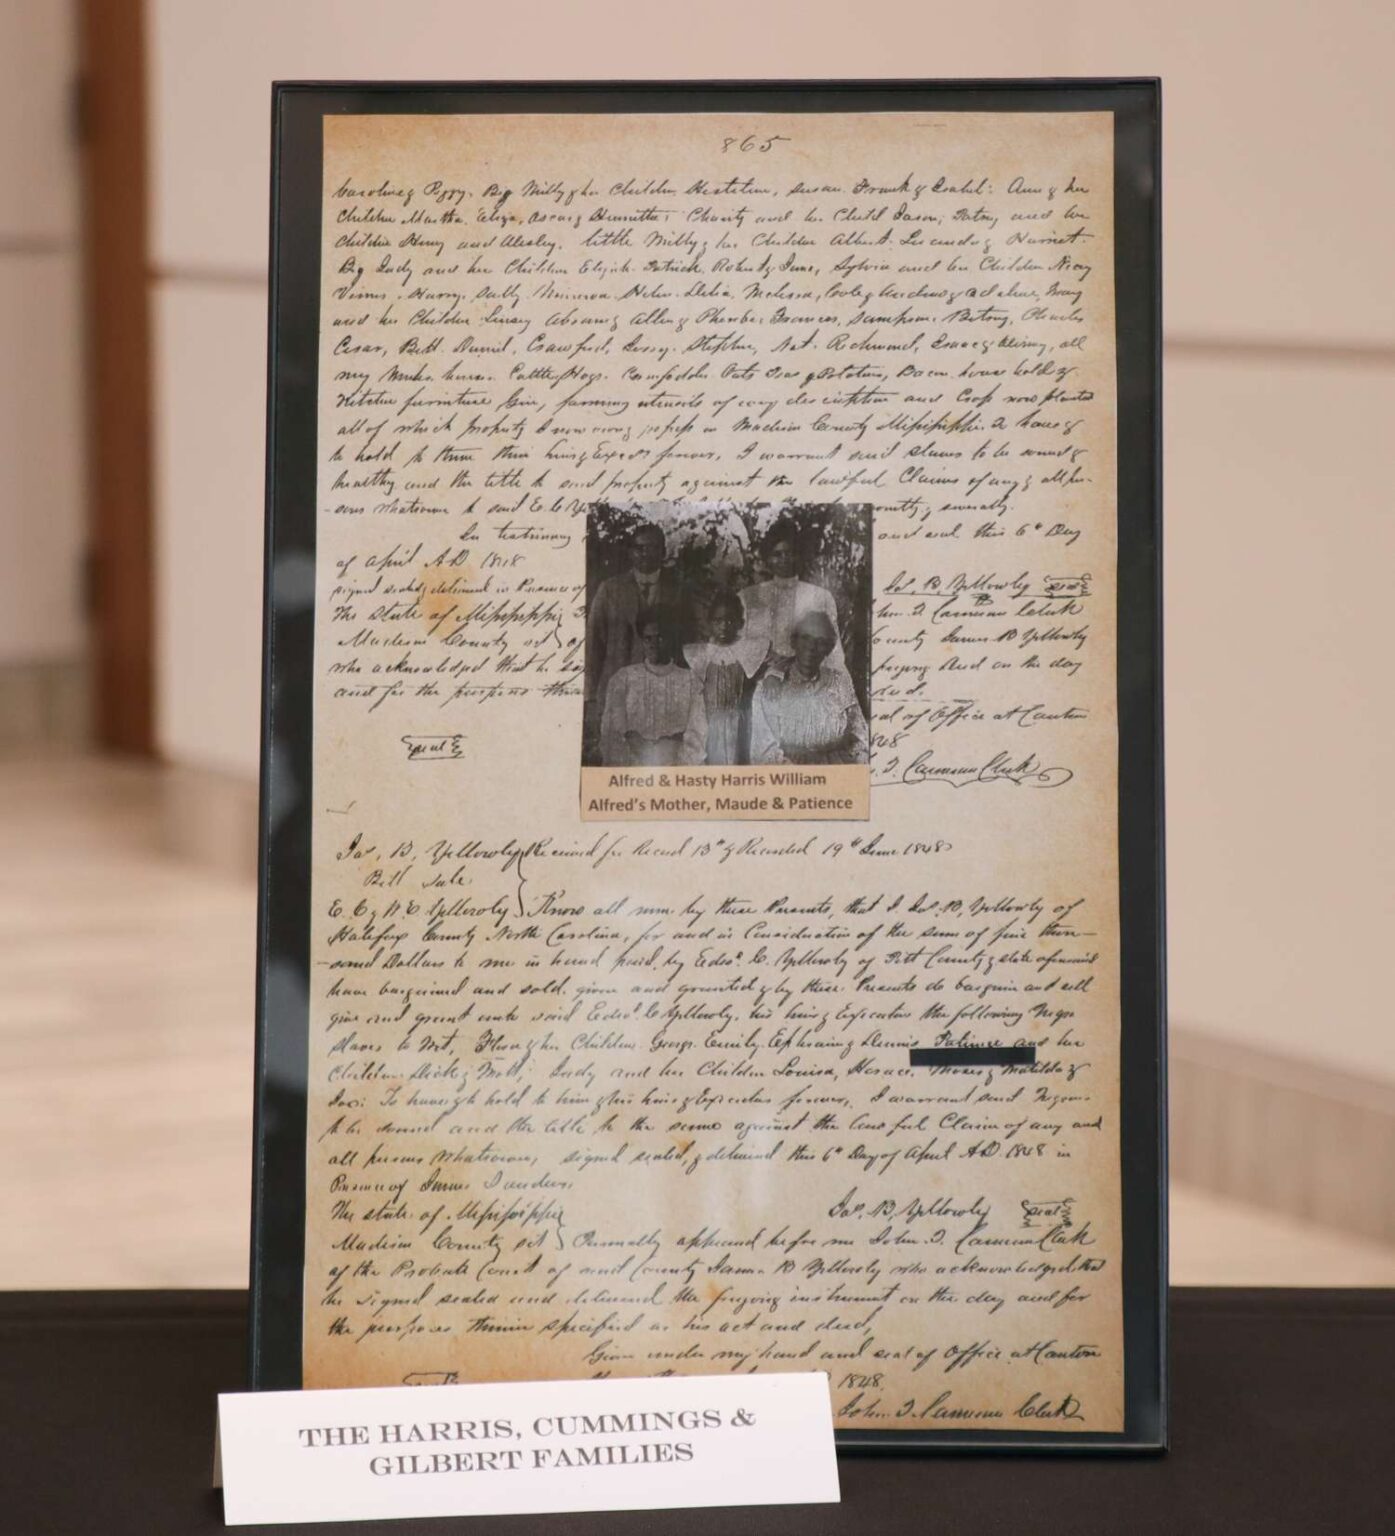 865
Caroline & Peggy. Big Milly & her Children Susan. Frank & Isabel: Ann & her
Children Martha. Eliza, Charity and her Child Jason; Patsy and her
Children Henry and Wesley. little Milly & her Children Albert. Lucinda & Harriet.
Big Judy and her Children Elijah. Patrick. Robert & June, Sylvia and her Children
Venus. Harry. Sally. Minerva. Helen. Delia. Melissa,
and her Children Phoebe: Frances, Sampson. Betsey, Charles
Cesar, Bill. Daniel, Crawford, Stephen, Nat. Richmond, Isaac & all
my Mules horses. Cattle, Hogs. Corn fodder. Oats Peas & Potatoes, Bacon. house hold &
Kitchen furniture Gin, farming utensils of every description and Crop now planted
all of which property I now possess in Madison County Mississippi. To have &
to hold to them their heirs & Exects forever, I warrant said slaves to be sound &
healthy and the title to said property against the lawful Claims of any & all per-
-sons whatsoever to said E. C. severally.
In testimony and seal this 6th Day
of April A.D 1848
signed sealed & delivered in Presence of Jas, B, Yellowly seal
The State of Mississippi J. Cameron Clerk
Madison County James B Yellowly
who acknowledged that he Deed on the day
and for the purposes
seal of Office at Canton
1848
seal J. Cameron Clerk
Alfred & Hasty Harris William
Alfred's Mother, Maude & Patience
Jas, B, Yellowly Received for Record 13th & Recorded 19th June 1848
Bill Sale
E. C. & Yellowly Know all men by these Presents, that I Jas. B, Yellowly of
Halifax County North Carolina, for and in Consideration of the sum of five thou-
-sand Dollars to me in hand paid, by Edwd. C. Yellowly of Pitt County & state aforesaid
have bargained and sold. given and granted & by these Presents do bargain and sell
give and grant unto said Edwd. C Yellowly, his heirs & Executors the following Negro
slaves to Wit, & her Children. George. Emily. Ephraim & Dennis and her
Children Dick & Judy and her Children Louisa, Horace. Moses & Matilda &
To have & to hold to him & his heirs & Executors forever, I warrant said Negroes
to be sound and the title to the same against the lawful Claim of any and
all persons whatsoever, signed sealed, & delivered this 6th Day of April A.D. 1848 in
Presence of James Sanders.
The state of Mississippi Jas. B, Yellowly seal
Madison County Personally appeared before me John. J. Cameron Clerk
of the Probate Court of said County James B Yellowly who acknowledged that
he signed sealed and delivered the foregoing instrument on the day and for
the purposes therein specified as his act and deed,
Given under my hand and seal of Office at Canton
1848.
John. J. Cameron Clerk
THE HARRIS, CUMMINGS &
GILBERT FAMILIES